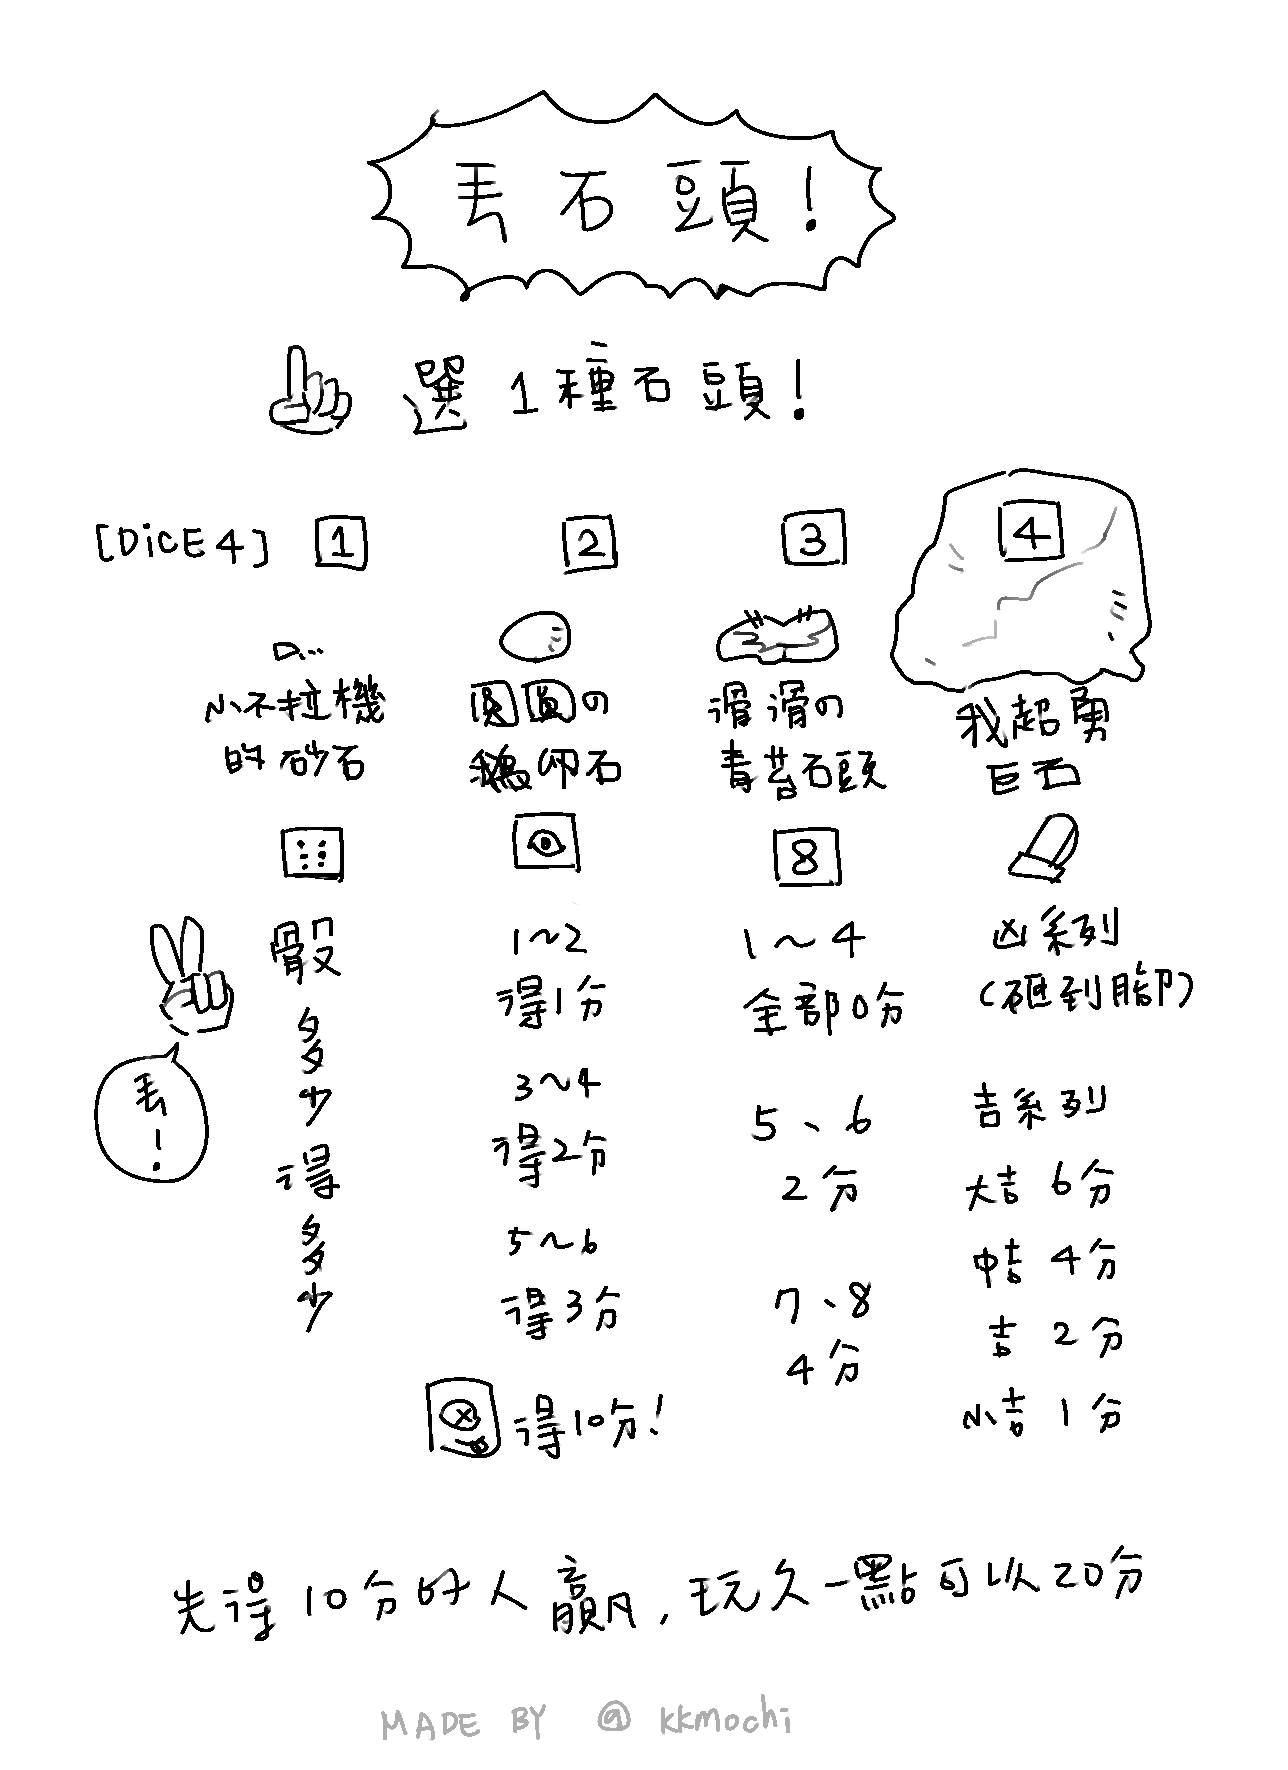 丟石頭！
選1種石頭！
[DiCE4] 1 2 3 4
小不拉機
的砂石
圓圓の
鵝卵石
滑滑の
青苔石頭
我超勇
巨石
8
丟！
骰
多
少
得
多
少
1~2
得1分
3~4
得2分
5~6
得3分
得10分！
1~4
全部0分
5、6
2分
7、8
4分
凶系列
(砸到腳)
吉系列
大吉 6分
中吉 4分
吉 2分
小吉 1分
先得10分的人贏，玩久一點可以20分
MADE BY @ kkmochi